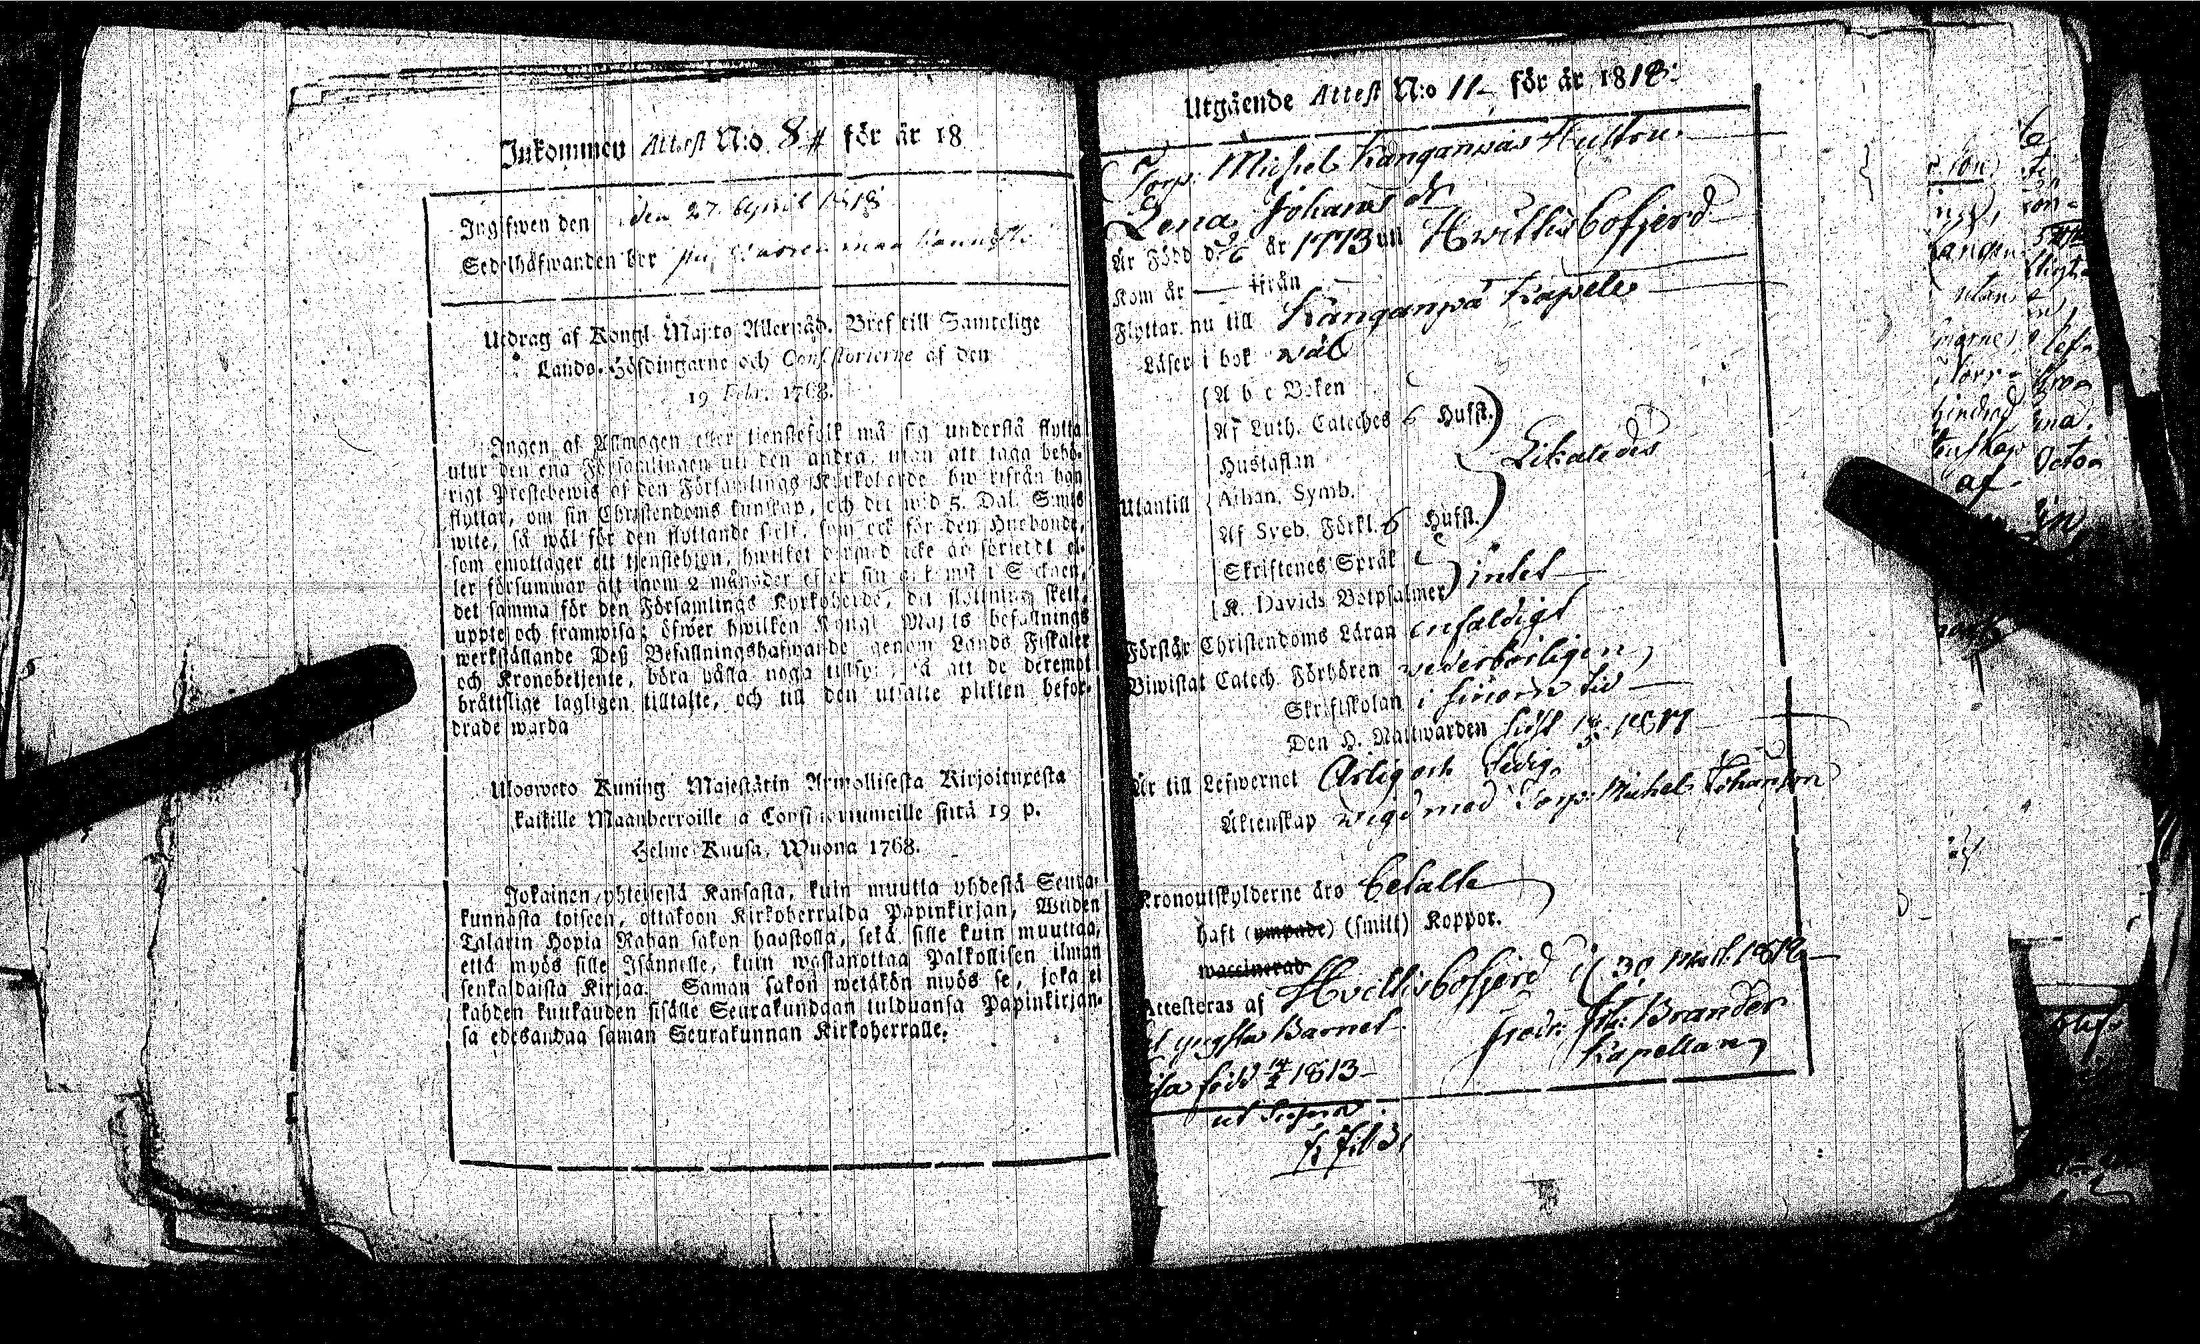 Inkommen Attest N:o 84 för år 18
Ingifwen den den 27 April 1818
Sedelhafwanden bor
Utdrag af Kongl. Maj:ts Allernåd. Bref till Samtelige
Lands-Höfdingarne och Consistorierne af den
19 Febr. 1768.
Ingen af Allmogen eller tienstefolk må sig understå flytta
utur den ena Församlingen uti den andra, utan att taga behö-
rigt Prestebewis af den Församlings Kyrkoherde, hwarifrån han
flyttar, om sin Christendoms kunskap, och det wid 5. Dal. S:mts
wite, så wäl för den flyttande sielf, som ock för den Husbonde,
som emottager ett tienstehjon, hwilket dermed icke är försedt el-
ler försummar att inom 2 månader efter sin ankomst i Socknen,
det samma för den Församlings Kyrkoherde, dit flyttning skett,
uppte och framwisa; öfwer hwilken Kongl. Maj:ts befallnings
werkställande Deß Befallningshafwande genom Lands Fiskaler
och Kronobetjente, böra hålla noga tillsyn, så att de deremot
bråttslige lagligen tilltalte, och till den utsatte plikten befor-
drade warda
Uloswето Kuning Majestätin Armollisesta Kirjoituxesta
kaikille Maanherroille ja Consistoriumeille siitä 19 p.
Helme Kuusa, Wuona 1768.
Jokainen yhteisestä Kansasta, kuin muutta yhdestä Seura-
kunnasta toiseen, ottakoon Kirkoherralda Papinkirjan, Wiiden
Talarin Hopia Rahan sakon haastolla, sekä sille kuin muuttaa,
että myös sille Isännelle, kuin wastanottaa Palkollisen ilman
senkaldaista Kirjaa. Saman sakon wetäkön myös se, joka ei
kahden kuukauden sisälle Seurakundaan tulduansa Papinkirjan-
sa edesandaa saman Seurakunnan Kirkoherralle.
Utgående Attest N:o 11 för år 1818.
Torp. Michel Kanganpääs Hustru
Lena Johans dr
Är Född d. 3/6 år 1773 uti Hvittisbofjerd
Kom år — ifrån
Flyttar nu till Kanganpä Kapele
Läser i bok wäl
A b c Boken
Af Luth. Cateches 6 Hufst.
Hustaflan
Utantill Athan. Symb. Likaledes
Af Sveb. Förkl. 6 Hufst.
Skriftenes Språk
K. Davids Botpsalmer intet
Förstår Christendoms Läran enfaldigt
Biwistat Catech. Förhören wederbörligen
Skriftskolan i sinom tid
Den H. Nattwarden sist 18/5 1817
Är till Lefwernet Ärlig och Sedig
Äktenskap wigd med Torp. Michel Johansson
Kronoutskylderne äro betalte
haft (ympade) (smitt) Koppor.
waccinerad
Attesteras af Hvittisbofjerd d. 30 Mart. 1818
yngsta Barnet Fredr. Brander
född 14/2 1813 Kapellan
ut Supra